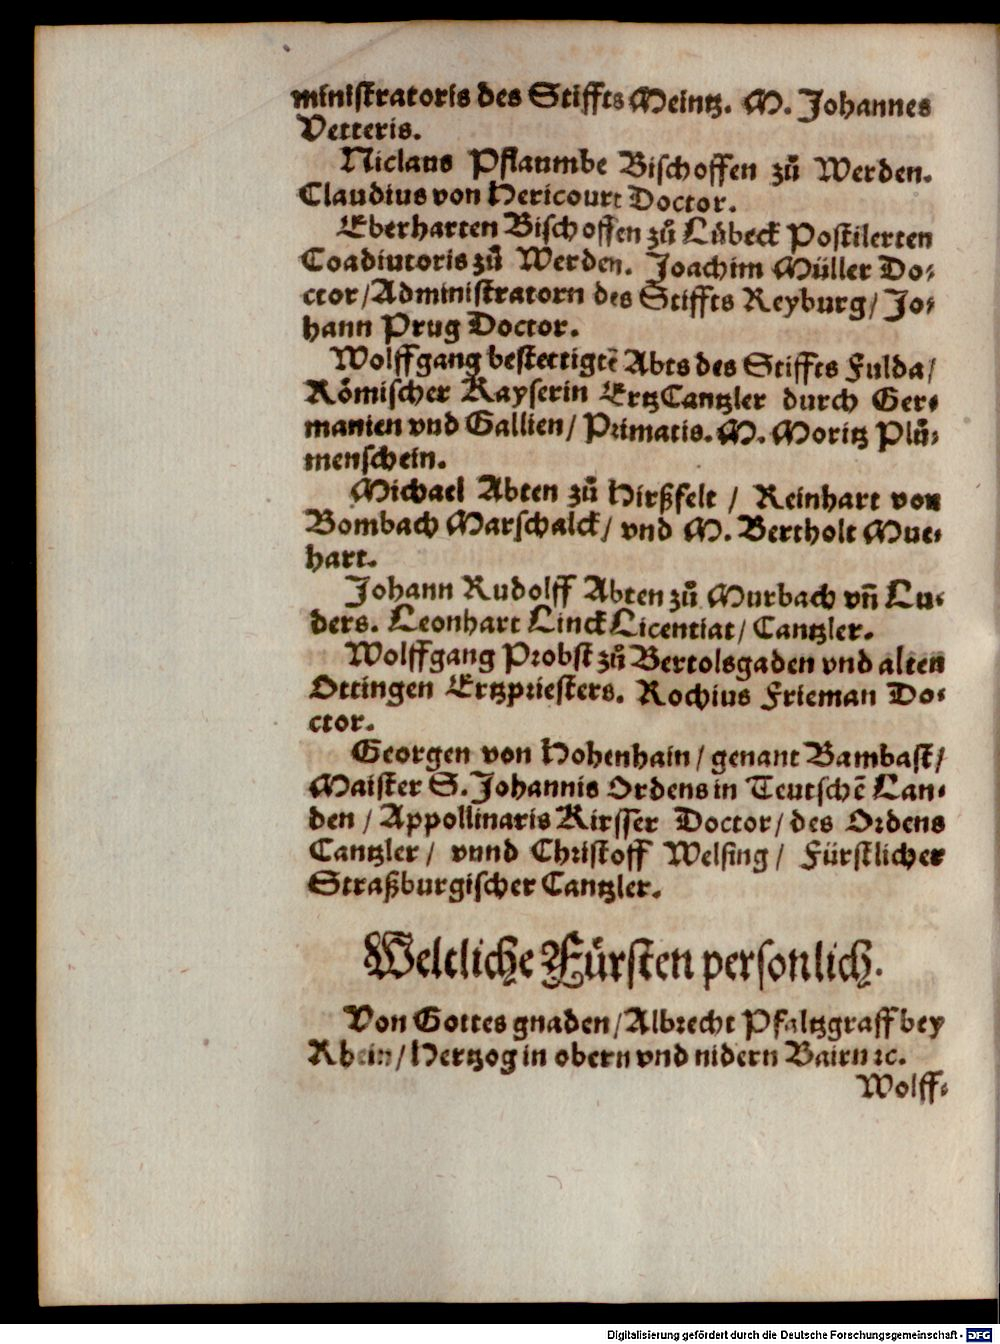 ministratoris des Stiffts Meintz. M. Johannes
Vetteris.
Niclaus Pflaumbe Bischoffen zů Werden.
Claudius von Hericourt Doctor.
Eberharten Bischoffen zů Lübeck Postilerten
Coadiutoris zů Werden. Joachim Müller Do⸗
ctor/Administratorn des Stiffts Reyburg/ Jo⸗
hann Prug Doctor.
Wolffgang bestettigtē Abts des Stiffts Fulda/
Römischer Kayserin ErtzCantzler durch Ger⸗
manien vnd Gallien/ Primatis. M. Moritz Plů⸗
menschein.
Michael Abten zů Hirßfelt / Reinhart von
Bombach Marschalck/ vnd M. Bertholt Mue⸗
hart.
Johann Rudolff Abten zů Murbach vn̄ Lu⸗
ders. Leonhart Linck Licentiat/ Cantzler.
Wolffgang Probst zů Bertolsgaden vnd alten
Ottingen Ertzpriesters. Rochius Frieman Do⸗
ctor.
Georgen von Hohenhain/ genant Bambast/
Maister S. Johannis Ordens in Teutschē Lan⸗
den / Appollinaris Kirsser Doctor/ des Ordens
Cantzler/ vnnd Christoff Welsing/ Fürstlicher
Straßburgischer Cantzler.
Weltliche Fürsten personlich.
Von Gottes gnaden/Albrecht Pfaltzgraff bey
Rhein/Hertzog in obern vnd nidern Bairn ꝛc.
Wolff⸗
Digitalisierung gefördert durch die Deutsche Forschungsgemeinschaft - DFG